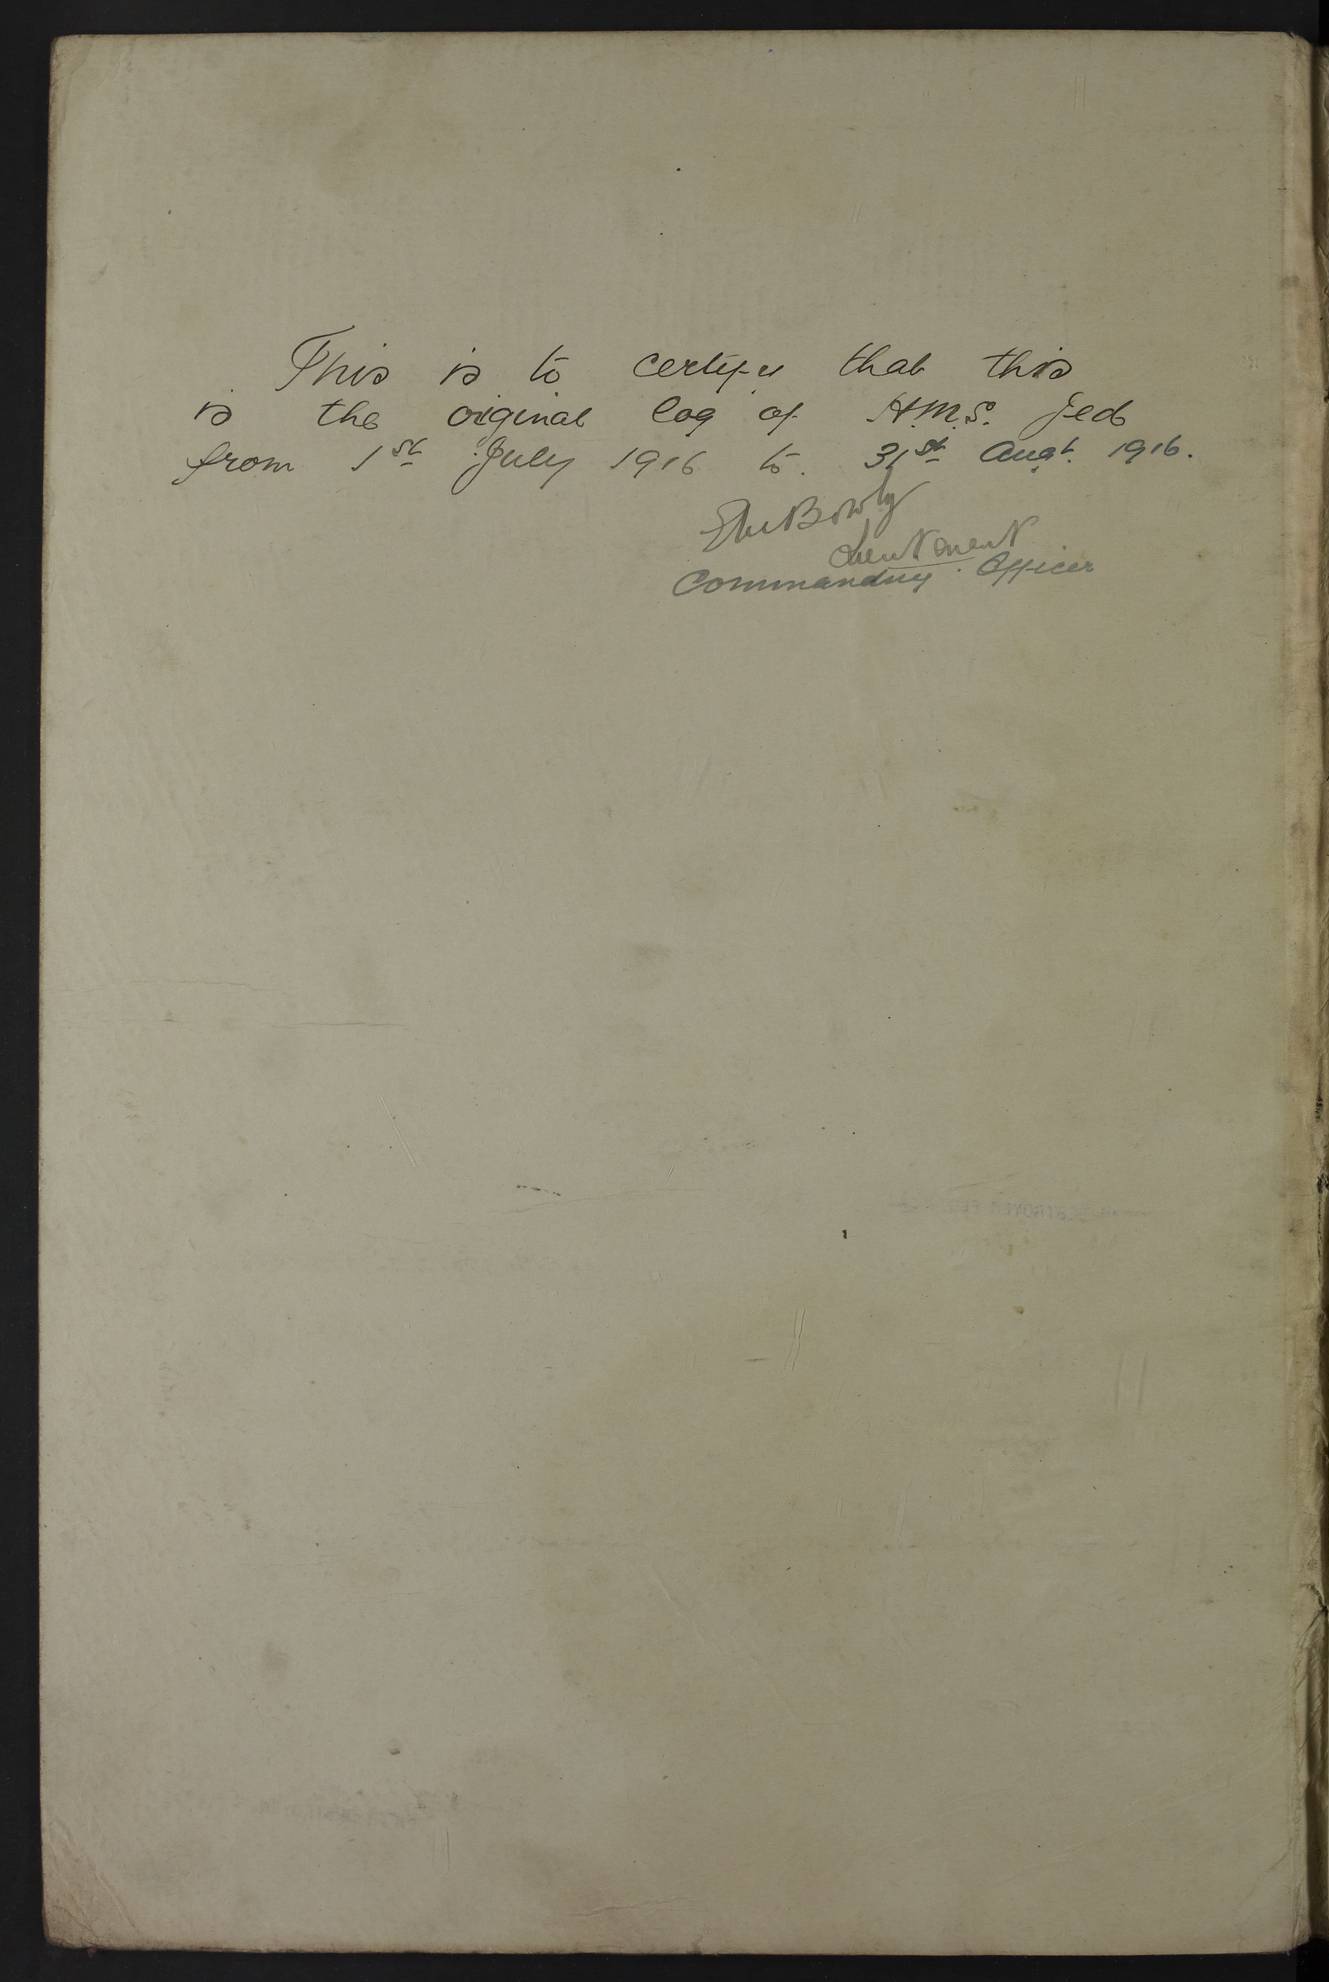 This is to certify that this
is the original log of H.M.S. Jed
from 1st July 1916 to 31st Augt. 1916.
Bowly
Lieutenant
Commanding Officer